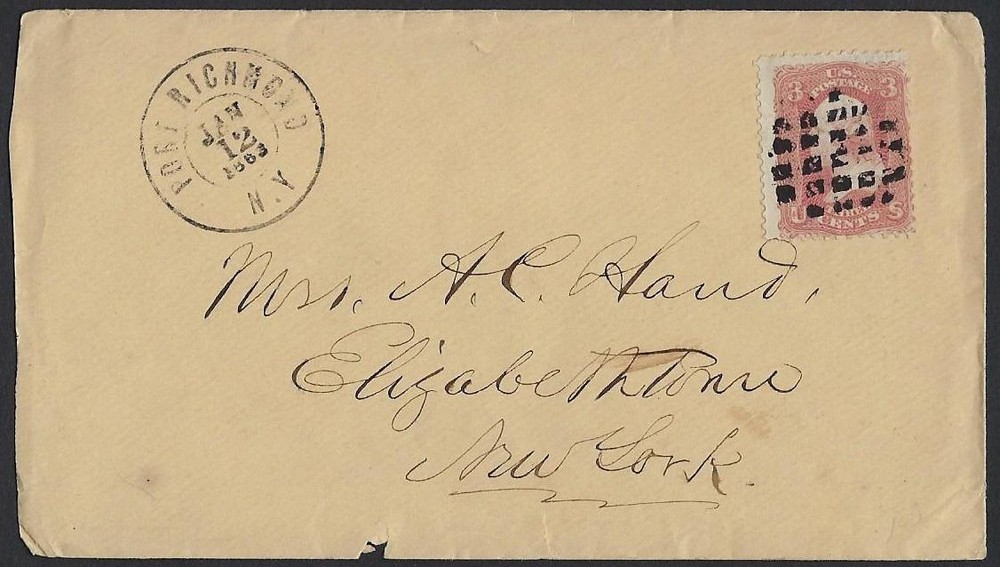 PORT RICHMOND
JAN
12
1863
N.Y
U.S.
POSTAGE
3 3
U S
CENTS
Mrs. A. C. Hand,
Elizabethtown
New York.